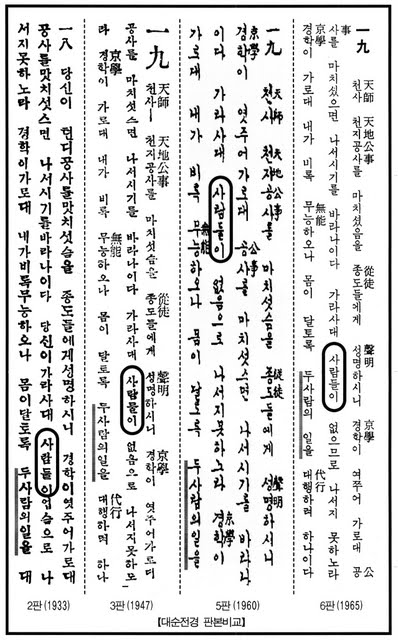 天師 天地公事 從徒 聲明 京學
一九 천사 천지공사를 마치셨음을 종도들에게 성명하시니 경학이 여쭈어 가로대 공
事
사를 마치셨으면 나서시기를 바라나이다 가라사대 사람들이 없으므로 나서지 못하노라
京學 無能 代行
경학이 가로대 내가 비록 무능하오나 몸이 달토록 두사람의 일을 대행하려 하나이다
天師 天地公事 從徒 聲明
一九 천사 천지공사를 마치섯슴을 종도들에게 성명하시니
京學 公事
경학이 엿주어가로대 공사를 마치섯스면 나서시기를 바라나
京學
이다 가라사대 사람들이 없음으로 나서지못하노라 경학이
無能
가로대 내가 비록 무능하오나 몸이 달도록 두사람의일을
天師 天地公事 從徒 聲明 京學
一九 천사ㅣ 천지공사를 마치섯슴은 종도들에게 성명하시니 경학이 엿주어가르되
공사를 마치섯스면 나서시기를 바라나이다 가라사대 사람들이 없음으로 나서지못하노
京學 無能 代行
라 경학이 가로대 내가 비록 무능하오나 몸이 달토록 두사람의일을 대행하려 하나
一八 당신이 텬디공사를맛치섯슴을 종도들에게성명하시니 경학이엿주어가로대
공사를맛치섯스면 나서시기를바라나이다 당신이가라사대 사람들이업슴으로 나
서지못하노라 경학이가로대 내가비록무능하오나 몸이달토록 두사람의일을 대
2판 (1933) 3판 (1947) 5판 (1960) 6판 (1965)
【대순전경 판본비교】